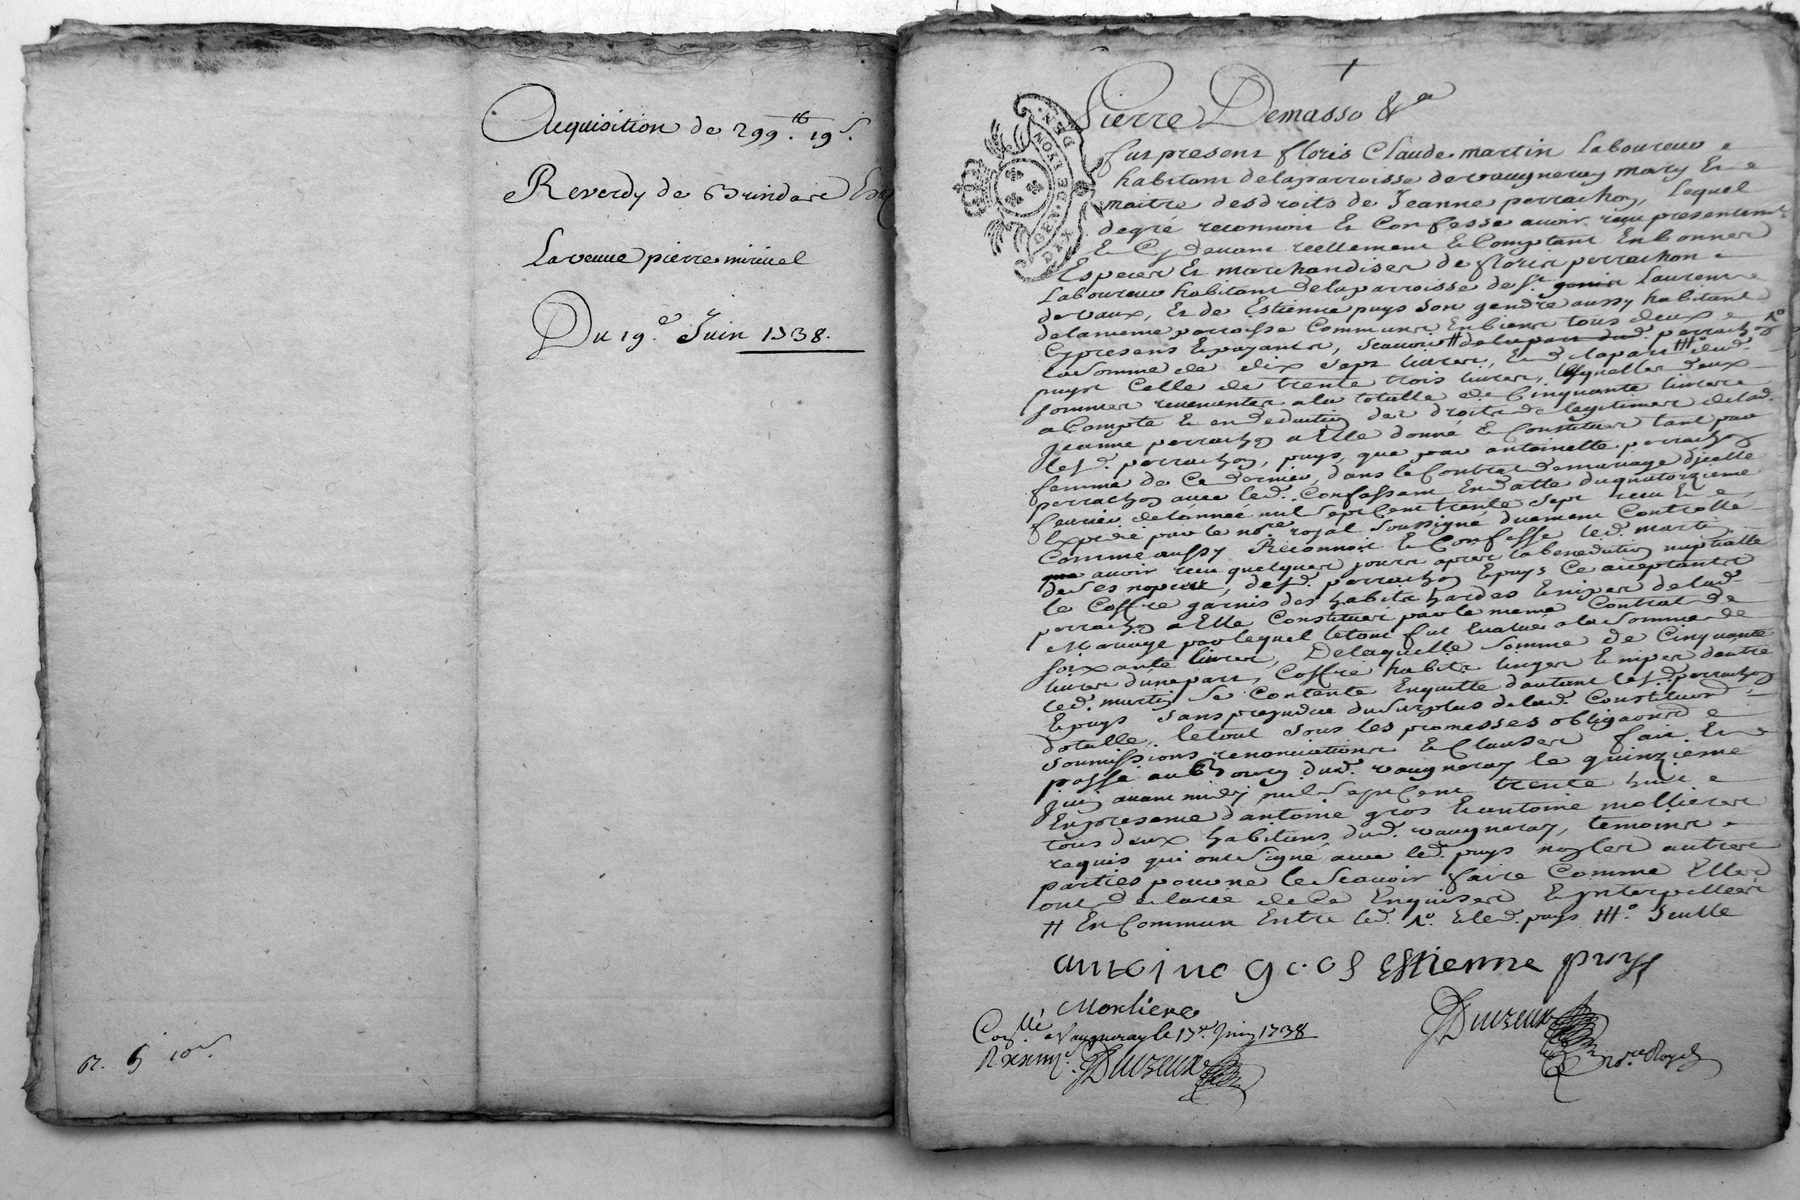 Acquisition de 299.lb 19s.
Reverdy de Brindare
La veuve pierre miriuel
Du 19.e Juin 1738.
GEN. DE LYON
SIX D. DEN.
Pierre Demasso &a
fut present floris Claude martin Laboureur
habitant de la parroisse de vaugneray mary Et
maitre des droits de Jeanne perrachon, Lequel
de gré reconnoit Et Confesse avoir reçu presentement
Et Cy devant reellement Et Comptant En bonnes
Especes Et marchandises de floris perrachon
Laboureur habitant de la parroisse de St Laurent
de vaux, Et de Estienne puys son gendre aussy habitant
de la meme parroisse Communs En biens tous deux
Cy presens Et payants, scavoir # de la part dud. perrachon
la somme de dix sept livres, Et de la part dud.
puys Celle de trente trois livres, lesquelles deux
sommes reviennent a la totalle de Cinquante livres
a Compte Et en deduction des droits de legitimes de lad.
Jeanne perrachon a Elle donné Et Constitués tant par
lesd. perrachon, puys, que par antoinette perrachon
femme de Ce dernier, dans le Contrat de mariage d'icelle
perrachon avec led. Confessant En datte du quatorzieme
fevrier de l'année mil sept Cent trente sept reçu Et
Expedié par le nore. royal soussigné duement Controllé
Comme aussy Reconnoit Et Confesse led. martin
avoir reçu quelques jours apres la benediction nuptialle
de ses nopces, desd. perrachon Et puys Ce acceptants
le Coffre garnis des habits hardes Et nipes de lad.
perrachon a Elle Constitués par le meme Contrat de
Mariage par lequel le tout fut Evalué a la somme de
soixante livres, De laquelle somme de Cinquante
livres d'une part, Coffre habits linges Et nipes d'autre
led. martin se Contente Enquitte d'autant lesd. perrachon
Et puys sans prejudice du surplus de lad. Constitution
dotalle. le tout sous les promesses obligations
soumissions renonciations Et Clauses fait Et
passé au Bourg dud. vaugneray le quinzieme
juin avant midy mil sept Cent trente huit
En presence d'antoine gros Et antoine mollieres
tous deux habitans dud. vaugneray, temoins
requis qui ont signé avec led. puys non les autres
parties pour ne le scavoir faire Comme Elles
ont declaré de Ce Enquises Et ynterpellées
# En Commun Entre led. Et led. puys Seulle
antoine gros Estienne puys
Morliere
Conllé a Vaugneray le 17.e Juin 1738
Duizeux
Duizeux
nore. Royal